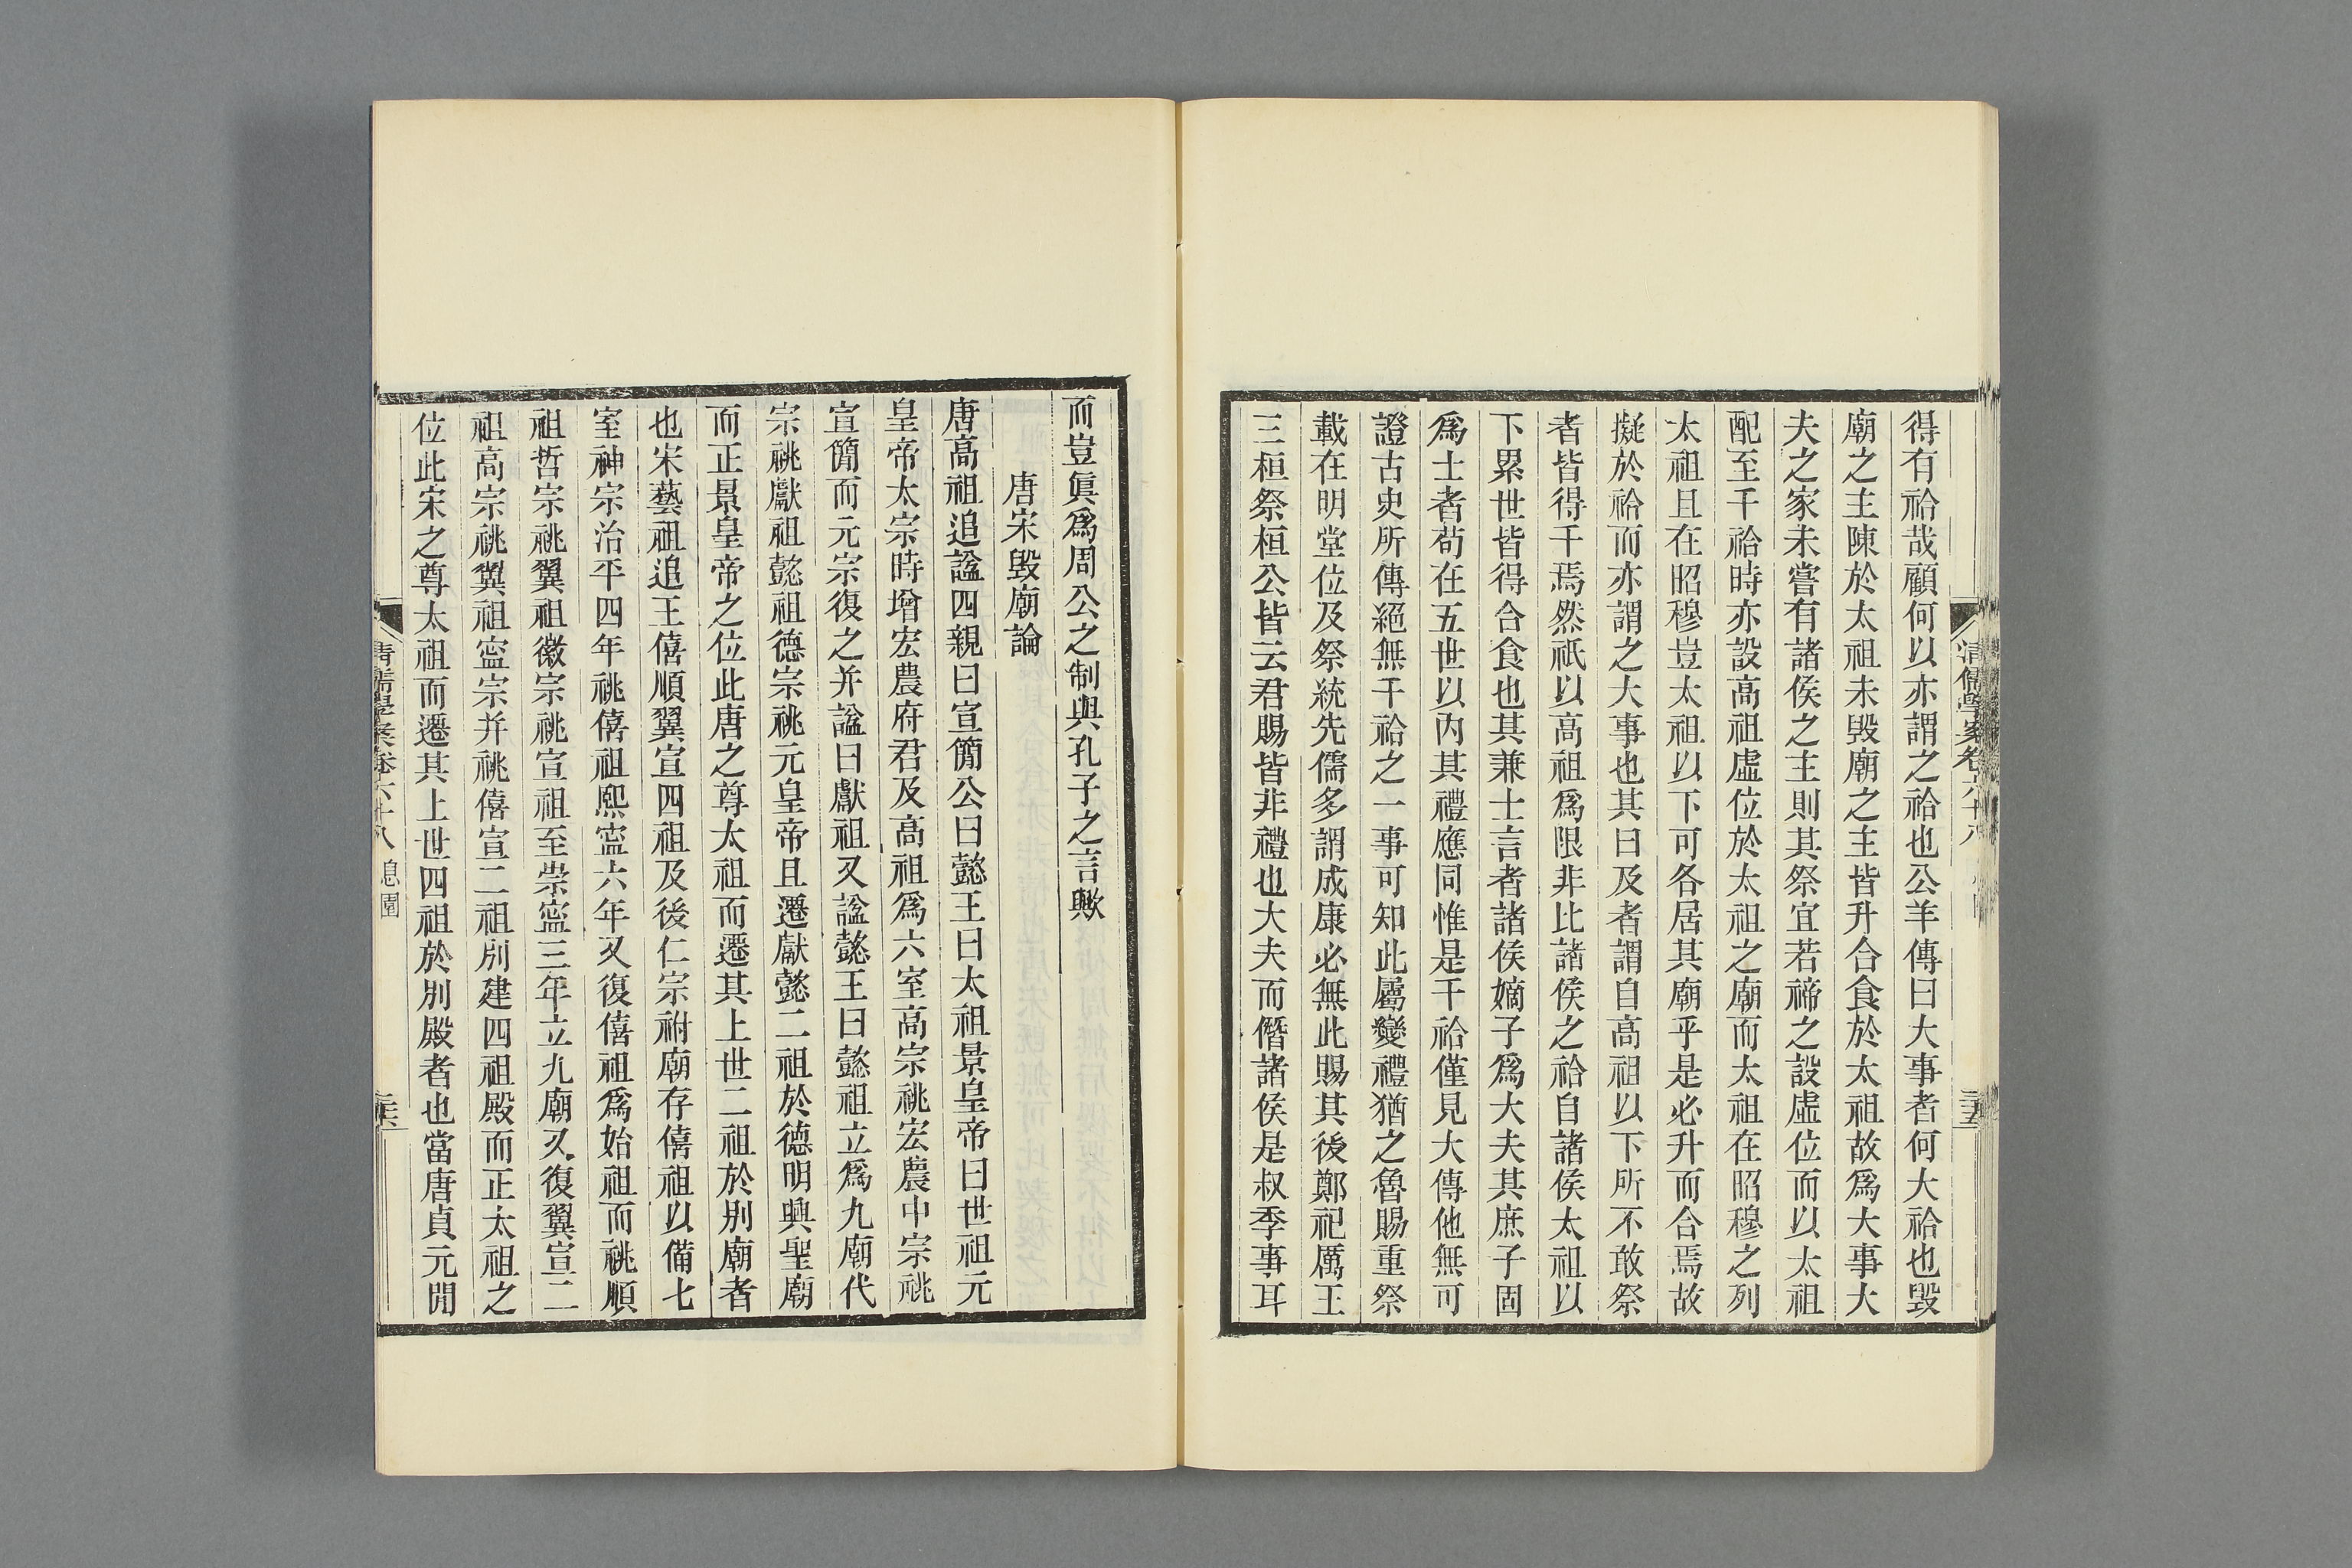 得有祫哉顧何以亦謂之祫也公羊傳曰大事者何大祫也毀
廟之主陳於太祖未毀廟之主皆升合食於太祖故爲大事大
夫之家未嘗有諸侯之主則其祭宜若禘之設虛位而以太祖
配至干祫時亦設高祖虛位於太祖之廟而太祖在昭穆之列
太祖且在昭穆豈太祖以下可各居其廟乎是必升而合焉故
擬於祫而亦謂之大事也其曰及者謂自高祖以下所不敢祭
者皆得干焉然祇以高祖爲限非比諸侯之祫自諸侯太祖以
下累世皆得合食也其兼士言者諸侯嫡子爲大夫其庶子固
爲士者苟在五世以內其禮應同惟是干祫僅見大傳他無可
證古史所傳絕無干祫之一事可知此屬變禮猶之魯賜重祭
載在明堂位及祭統先儒多謂成康必無此賜其後鄭祀厲王
三桓祭桓公皆云君賜皆非禮也大夫而僭諸侯是叔季事耳
清儒學案卷六十八
三五
而豈眞爲周公之制與孔子之言歟
唐宋毀廟論
唐高祖追諡四親曰宣簡公曰懿王曰太祖景皇帝曰世祖元
皇帝太宗時增宏農府君及高祖爲六室高宗祧宏農中宗祧
宣簡而元宗復之并諡曰獻祖又諡懿王曰懿祖立爲九廟代
宗祧獻祖懿祖德宗祧元皇帝且遷獻懿二祖於德明興聖廟
而正景皇帝之位此唐之尊太祖而遷其上世二祖於別廟者
也宋藝祖追王僖順翼宣四祖及後仁宗祔廟存僖祖以備七
室神宗治平四年祧僖祖熙寍六年又復僖祖爲始祖而祧順
祖哲宗祧翼祖徽宗祧宣祖至崇寍三年立九廟又復翼宣二
祖高宗祧翼祖寍宗并祧僖宣二祖別建四祖殿而正太祖之
位此宋之尊太祖而遷其上世四祖於別殿者也當唐貞元閒
清儒學案卷六十八 息園
三六